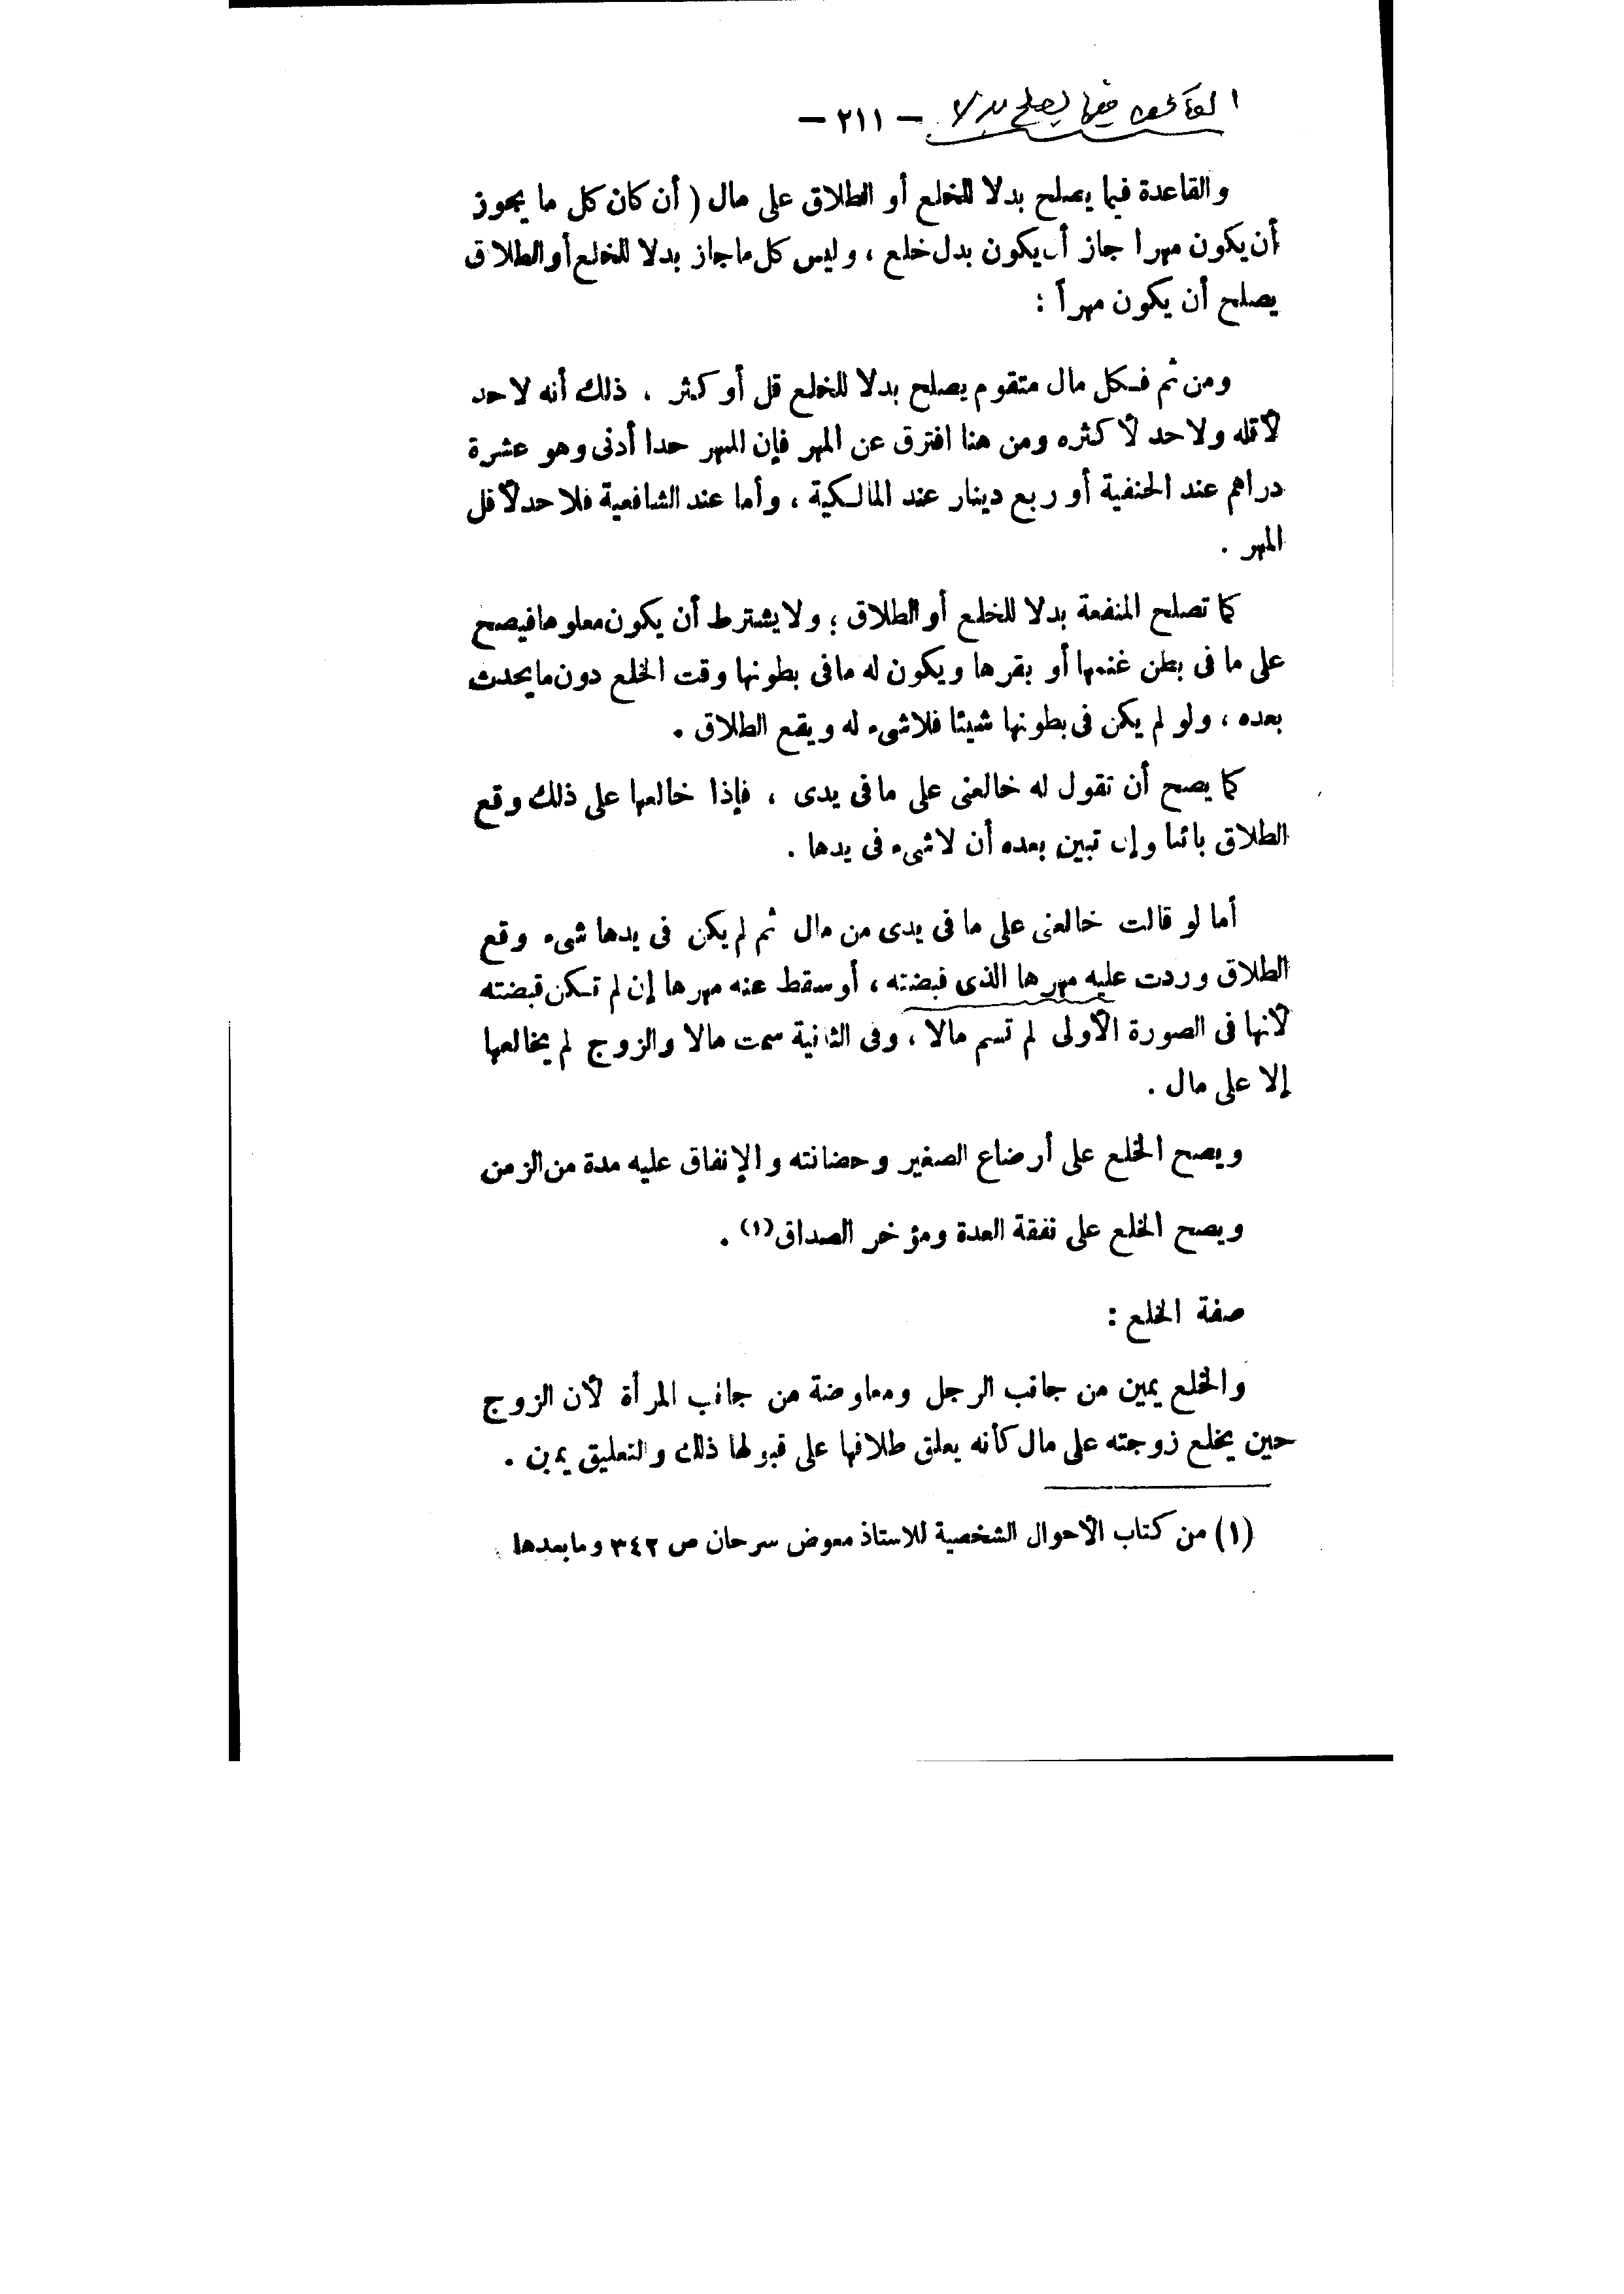 القاعدة فيما يصلح بدلا - ٢١١ -
والقاعدة فيما يصلح بدلا للخلع أو الطلاق على مال ( أن كان كل ما يجوز
أن يكون مهرا جاز أن يكون بدل خلع ، وليس كل ما جاز بدلا للخلع أو الطلاق
يصلح أن يكون مهراً :
ومن ثم فكل مال متقوم يصلح بدلا للخلع قل أو كثر . ذلك أنه لا حد
لأقله ولا حد لأكثره ومن هنا افترق عن المهر فإن للمهر حدا أدنى وهو عشرة
دراهم عند الحنفية أو ربع دينار عند المالكية ، وأما عند الشافعية فلا حد لأقل
المهر .
كما تصلح المنفعة بدلا للخلع أو الطلاق ؛ ولا يشترط أن يكون معلوما فيصح
على ما فى بطن غنمها أو بقرها ويكون له ما فى بطونها وقت الخلع دون ما يحدث
بعده ، ولو لم يكن فى بطونها شيئا فلا شىء له ويقع الطلاق .
كما يصح أن تقول له خالعنى على ما فى يدى ، فإذا خالعها على ذلك وقع
الطلاق بائنا وإن تبين بعده أن لا شىء فى يدها .
أما لو قالت خالعنى على ما فى يدى من مال ثم لم يكن فى يدها شىء وقع
الطلاق وردت عليه مهرها الذى قبضته ، أو سقط عنه مهرها إن لم تكن قبضته
لأنها فى الصورة الأولى لم تسم مالا ، وفى الثانية سمت مالا والزوج لم يخالعها
إلا على مال .
ويصح الخلع على أرضاع الصغير وحضانته والإنفاق عليه مدة من الزمن
ويصح الخلع على نفقة العدة ومؤخر الصداق (١) .
صفة الخلع :
والخلع يمين من جانب الرجل ومعاوضة من جانب المرأة لأن الزوج
حين يخلع زوجته على مال كأنه يعلق طلاقها على قبولها ذلك والتعليق يمين .
(١) من كتاب الأحوال الشخصية للاستاذ معوض سرحان ص ٣٤٢ وما بعدها